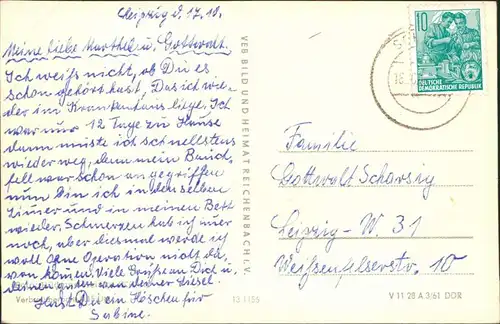 Leipzig d. 17.10.
Meine liebe Marthel u. Gottwalt.
Ich weiß nicht, ob Du es
schon gehört hast, Das ich wie-
der im Krankenhaus liege. Ich
war nur 12 Tage zu Hause
dann mußte ich schnellstens
wieder weg, denn mein Bauch,
fell war schon an gegriffen
nun bin ich in demselben
Zimer und in meinen Bett
wieder. Schmerzen hab ich immer
noch, aber diesmal werde ich
wohl ohne Operation nicht da,
von komen. Viele Grüße an Dich u.
von deiner Liesel.
Hast Du ein Höschen für
Sabine.
VEB BILD UND HEIMAT REICHENBACH I. V.
13 1126
10
DEUTSCHE
DEMOKRATISCHE REPUBLIK
Familie
Gottwalt Scharsky
Leipzig-W. 31
Weißenfelserstr. 10
V 11 28 A 3/61 DDR